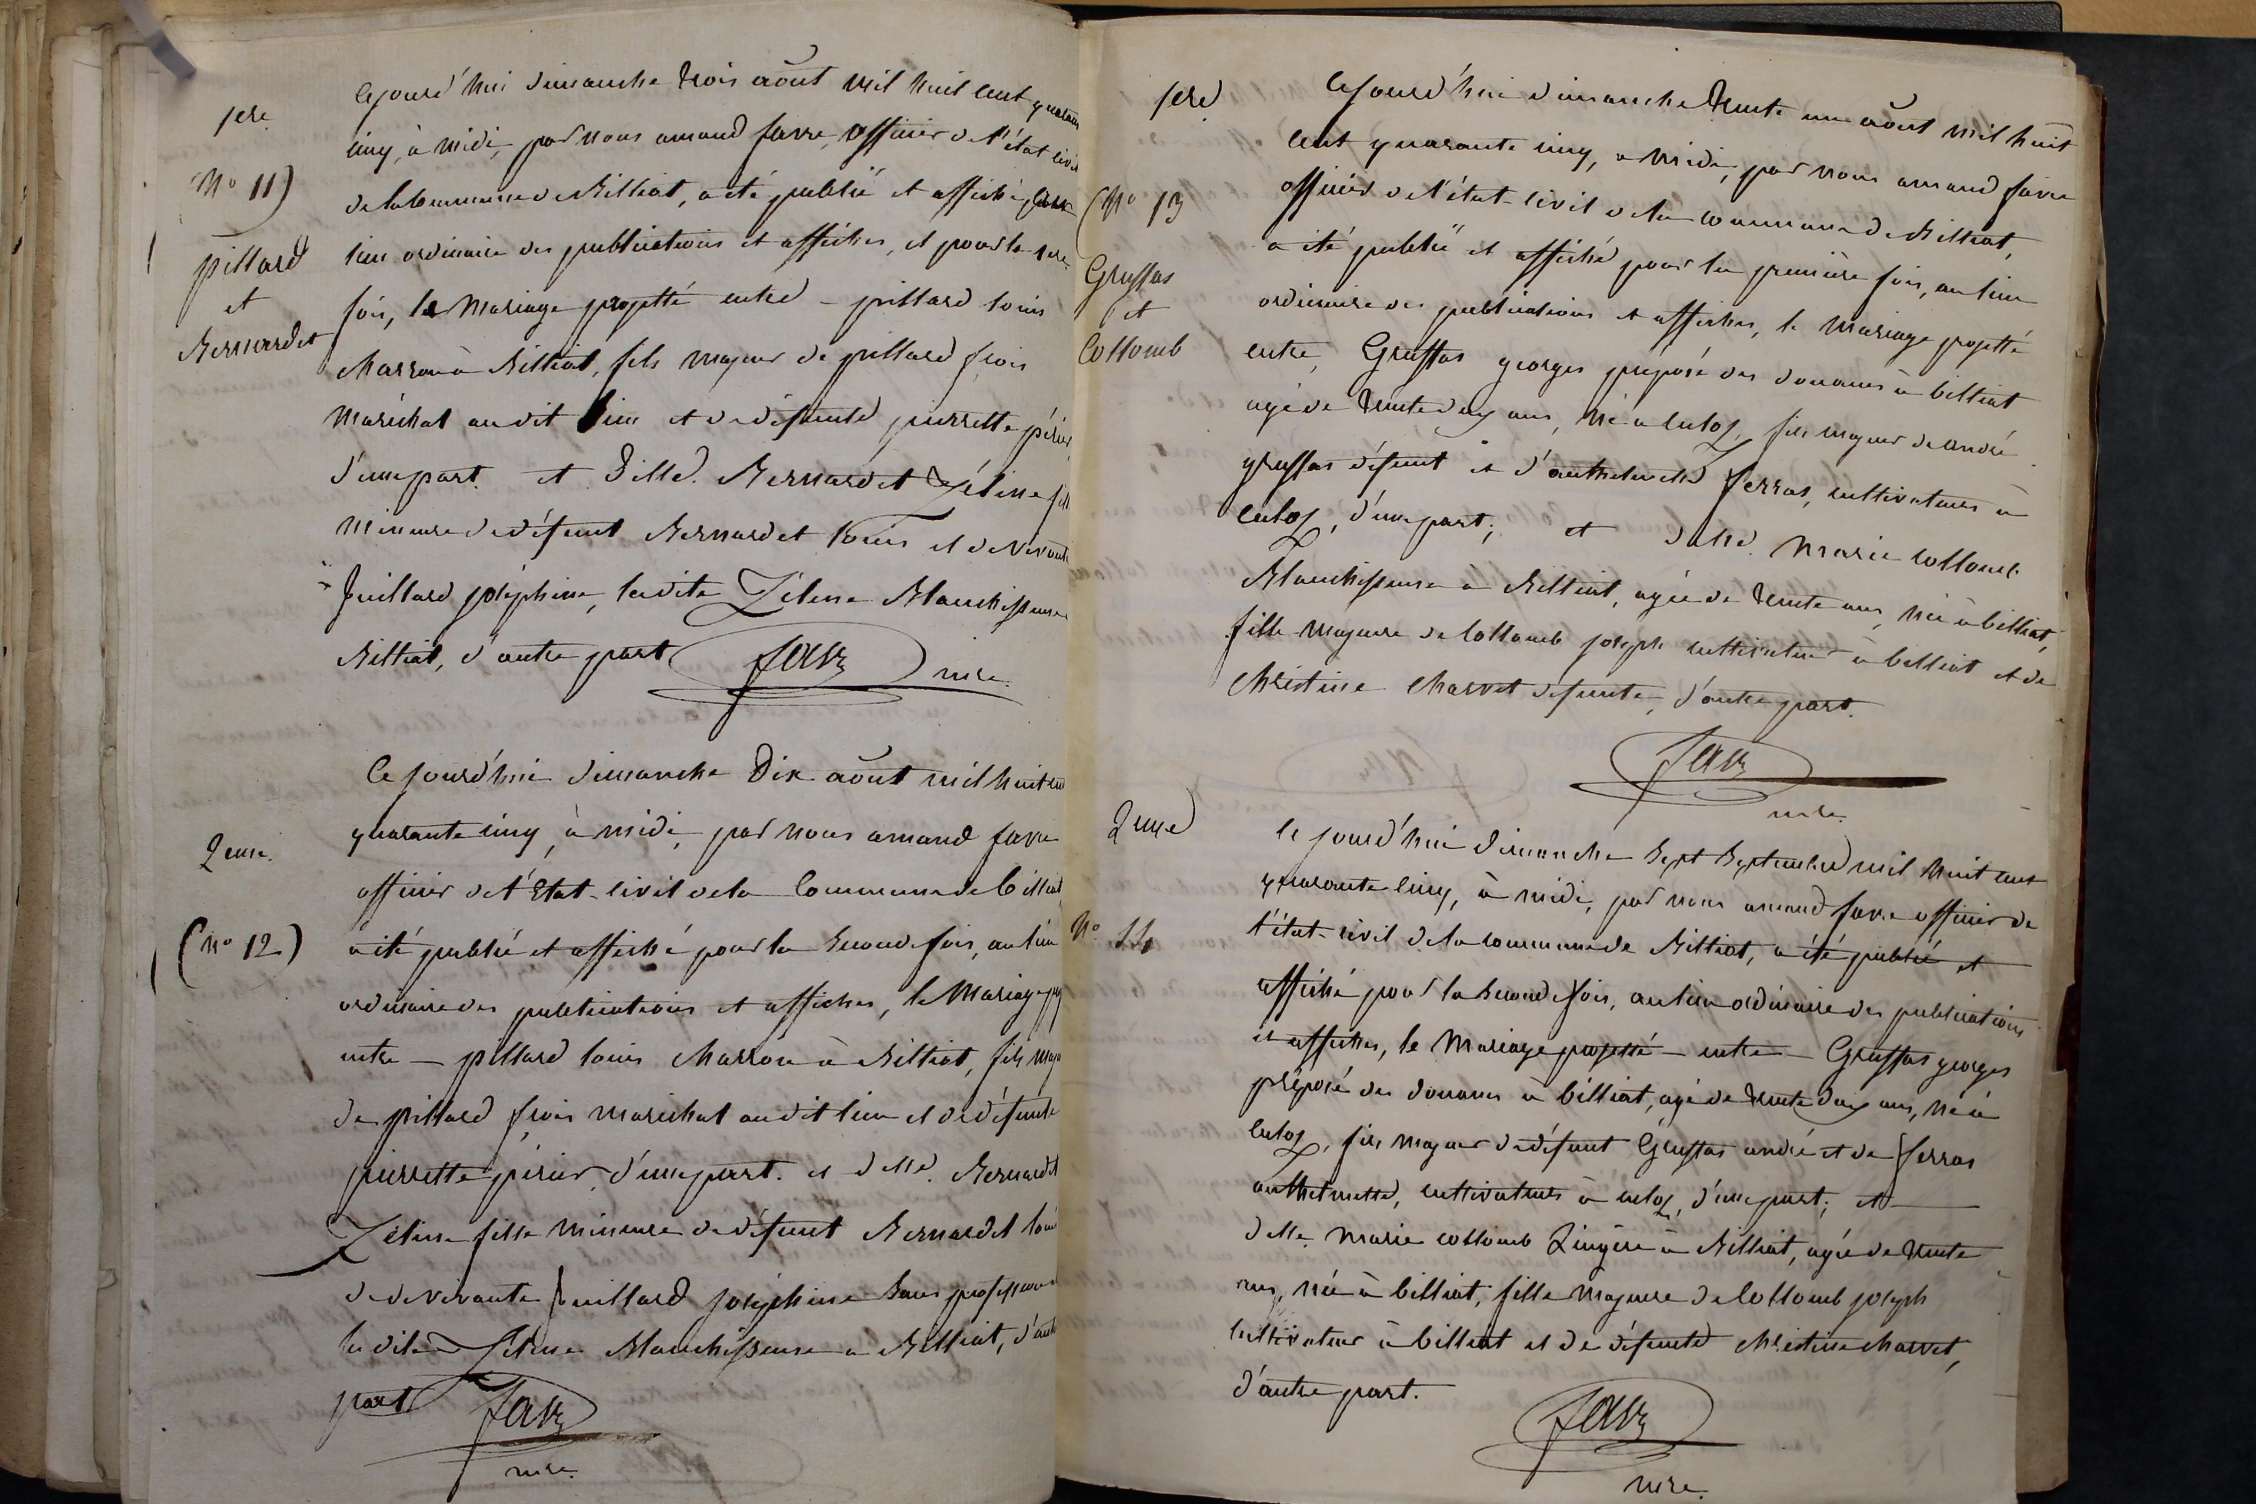 1ere
(N° 11)
pillard
et
Bernardet
Cejourd'hui dimanche trois août mil huit cent quarante
cinq, à midi, par nous amand favre, officier de l'état civil
de la Commune de Billiat, a été publié et affiché, au
lieu ordinaire des publications et affiches, et pour la 1ere
fois, le Mariage projetté entre - pillard louis
charron à Billiat, fils majeur de pillard frois
maréchal au dit lieu et de défunte pierrette périer,
d'une part. et Delle. Bernardet Zéline fille
mineure de défunt Bernardet Louis et de vivante
Juillard joséphine, la dite Zéline Blanchisseuse
Billiat, d'autre part
favre
mre.
2eme.
(N° 12)
Ce jourd'hui dimanche Dix août mil huit cent
quarante cinq, à midi, par nous amand favre
officier de l'État-civil de la Commune de billiat,
a été publié et affiché pour la seconde fois, au lieu
ordinaire des publications et affiches, le Mariage
entre - pillard louis charron à Billiat, fils majeur
de pillard frois maréchal au dit lieu et de défunte
pierrette périer, d'une part. et delle. Bernardet
Zéline fille mineure de défunt Bernardet louis
et de vivante Juillard joséphine sans profession
la dite Zéline Blanchisseuse à Billiat, d'autre
part
favre
mre.
1ere
(N° 13
Gruffas
et
Collomb
Cejourd'hui dimanche trente un août mil huit
cent quarante cinq, à midi, par nous amand favre
officier de l'état-civil de la commune de Billiat,
a été publié et affiché pour la première fois, au lieu
ordinaire des publications et affiches, le mariage projetté
entre, Gruffas georges préposé des douanes à billiat
agé de trente deux ans, né à culoz, fils majeur de andré
gruffas défunt et d'anthelmette ferras, cultivateurs à
culoz, d'une part; et delle. marie collomb
Blanchisseuse à Billiat, agée de trente ans, née à billiat,
fille majeure de Collomb joseph cultivateur à billiat et de
christine charvet défunte, d'autre part.
favre
mre.
2eme
N° 14
Ce jourd'hui dimanche sept septembre mil huit cent
quarante cinq, à midi, par nous amand favre officier de
l'état-civil de la commune de Billiat, a été publié et
affiché pour la seconde fois, au lieu ordinaire des publications
et affiches, le Mariage projetté - entre - Gruffas georges
préposé des douanes à billiat, agé de trente deux ans, né à
culoz, fils majeur de défunt Gruffas andré et de ferras
anthelmette, cultivateurs à culoz, d'une part; et
delle. marie collomb Lingère à Billiat, agée de trente
ans, née à billiat, fille majeure de Collomb joseph
cultivateur à billiat et de défunte christine charvet,
d'autre part.
favre
mre.